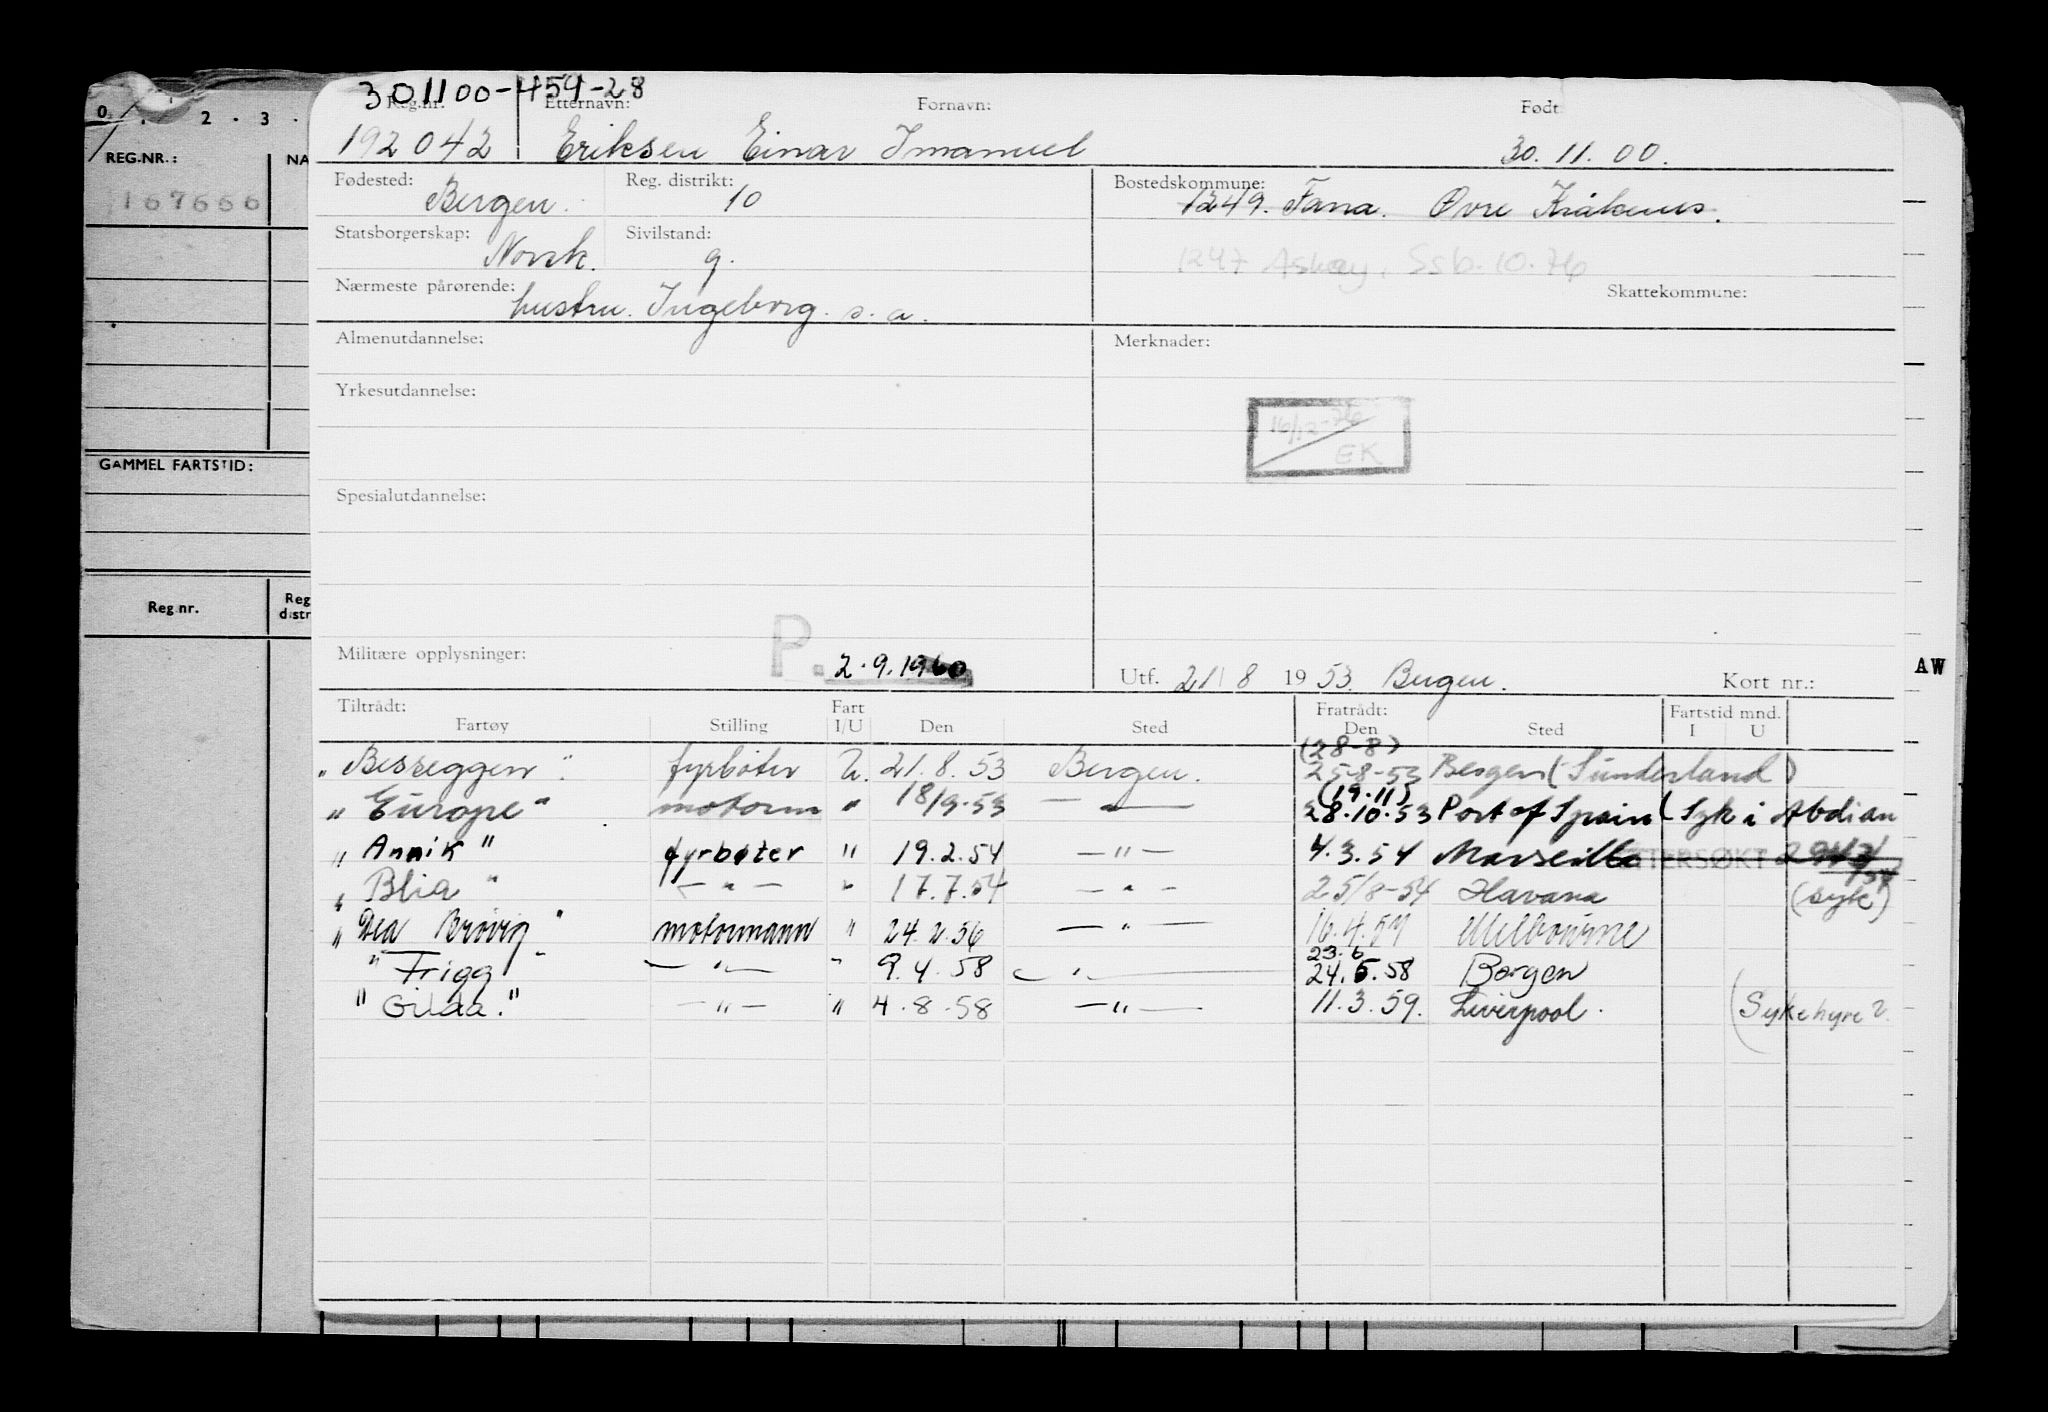 301100-454-28
0 1 . 2 . 3 .
REG.NR.: NA
167666
GAMMEL FARTSTID:
Reg.nr. Reg. distr
Reg.nr. Etternavn: Fornavn: Født
192042 Eriksen Einar Imanuel 30.11.00.
Fødested: Bergen. Reg. distrikt: 10 Bostedskommune: 1249. Fana. Øvre Kråkenes.
Statsborgerskap: Norsk. Sivilstand: g. 1247 Askøy, Ssb. 10.76
Nærmeste pårørende: hustru. Ingeborg. s. a. Skattekommune:
Almenutdannelse: Merknader:
Yrkesutdannelse:
16/12-76
EK
Spesialutdannelse:
Militære opplysninger: P. 2.9.1960 Utf. 21/8 1953. Bergen. Kort nr.:
AW
Tiltrådt: Fratrådt: Fartstid mnd.
Fartøy Stilling Fart I/U Den Sted Den Sted I U
"Besseggen" fyrbøter U. 21.8.53 Bergen. (28-8) 25-8-53 Bergen (Sunderland)
"Europe" motorm " 18/9-53 — " — (19.11) 28.10.53 Port of Spain (Syk i Abdian
"Annik" fyrbøter " 19.2.54 — " — 4.3.54 Marseille ETTERSØKT
"Blia" — " — " 17.7.54 — " — 25/8-54 Havana (syk)
"Dea Brøvig" motormann " 24.2.56 — " — 16.4.57 Melbourne
"Frigg" — " — " 9.4.58 — " — 23.6 24.5.58 Bergen
"Gilda." — " — " 4.8.58 — " — 11.3.59. Liverpool. (Sykehyre 2.